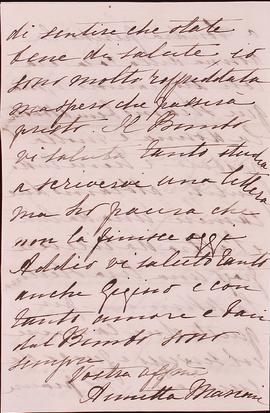 di sentire che state
bene di salute io
sono molto raffreddata
ma spero che passerà
presto. Il Bimbo
vi saluta tanto studia
a scrivervi una lettera
ma ho paura che
non la finisce oggi
Addio vi saluto tanto
anche Gigino e con
tanto amore e baci
dal Bimbo sono
sempre
Vostra affma
Annetta